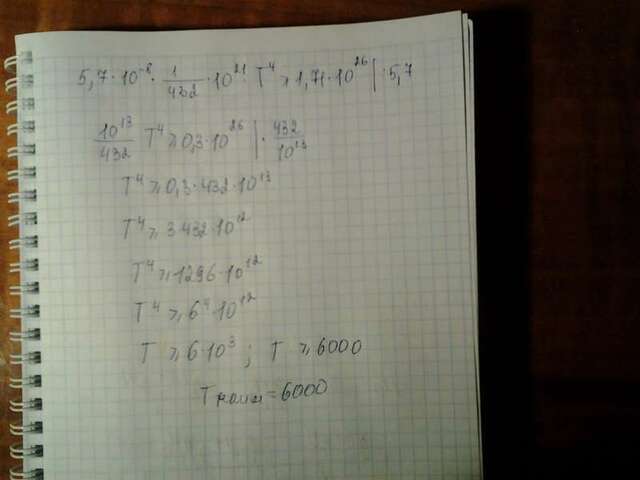 5,7·10⁻⁸·1/432·10²¹·T⁴⩾1,71·10²⁶|:5,7
10¹³/432 T⁴⩾0,3·10²⁶|·432/10¹³
T⁴⩾0,3·432·10¹³
T⁴⩾3·432·10¹²
T⁴⩾1296·10¹²
T⁴⩾6⁴·10¹²
T⩾6·10³; T⩾6000
Tнаим=6000